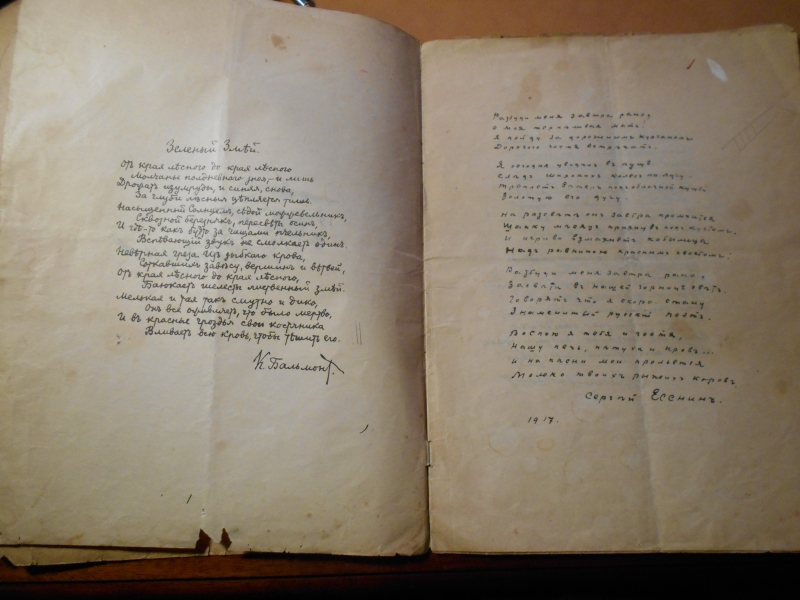 Зеленый Змѣй.
Отъ края лѣсного до края лѣсного
Молчанье полдневнаго зноя, и лишь
Дрожатъ изумруды и синяя, снова,
За глубью лѣсныя цѣпляется тишь.
Насыщенный Солнцемъ, сѣдой можжевельникъ,
Сквозной березнякъ, пересвѣтъ осинъ,
И гдѣ-то какъ будто за чащами пчельникъ,
Вспѣвающій звукъ не смолкаетъ одинъ.
Невѣрная греза изъ зыбкаго крова,
Соткавшись завѣсу, вершинъ и вѣтвей,
Отъ края лѣсного до края лѣсного,
Баюкаетъ шелестъ лиственный змѣй.
Мелькая и тая такъ смутно и дико,
Онъ все оживляетъ, что было мертво.
И въ красные гроздья свои костяника
Вливаетъ всю кровь, чтобы тѣшить его.
К. Бальмонт.
Разбуди меня завтра рано,
О моя терпѣливая мать!
Я пойду за дорожнымъ курганомъ
Дорогого гостя встрѣчать.
Я сегодня увидѣлъ въ пущѣ
Слѣдъ широкихъ колесъ на лугу.
Треплетъ вѣтеръ подъ облачной кущей
Золотую его дугу.
На разсвѣтѣ онъ завтра промчится
Шапку мѣсяцъ пригнувъ подъ кустомъ,
И игриво взмахнетъ кобылица
Надъ равниною краснымъ хвостомъ.
Разбуди меня завтра рано,
Засвѣти въ нашей горницѣ свѣтъ.
Говорятъ что я скоро стану
Знаменитый русскій поэтъ.
Воспою я тебя и гостя,
Нашу печь, пѣтуха и кровъ...
И на пѣсни мои прольется
Молоко твоихъ рыжихъ коровъ.
Сергѣй Есенинъ.
1917.